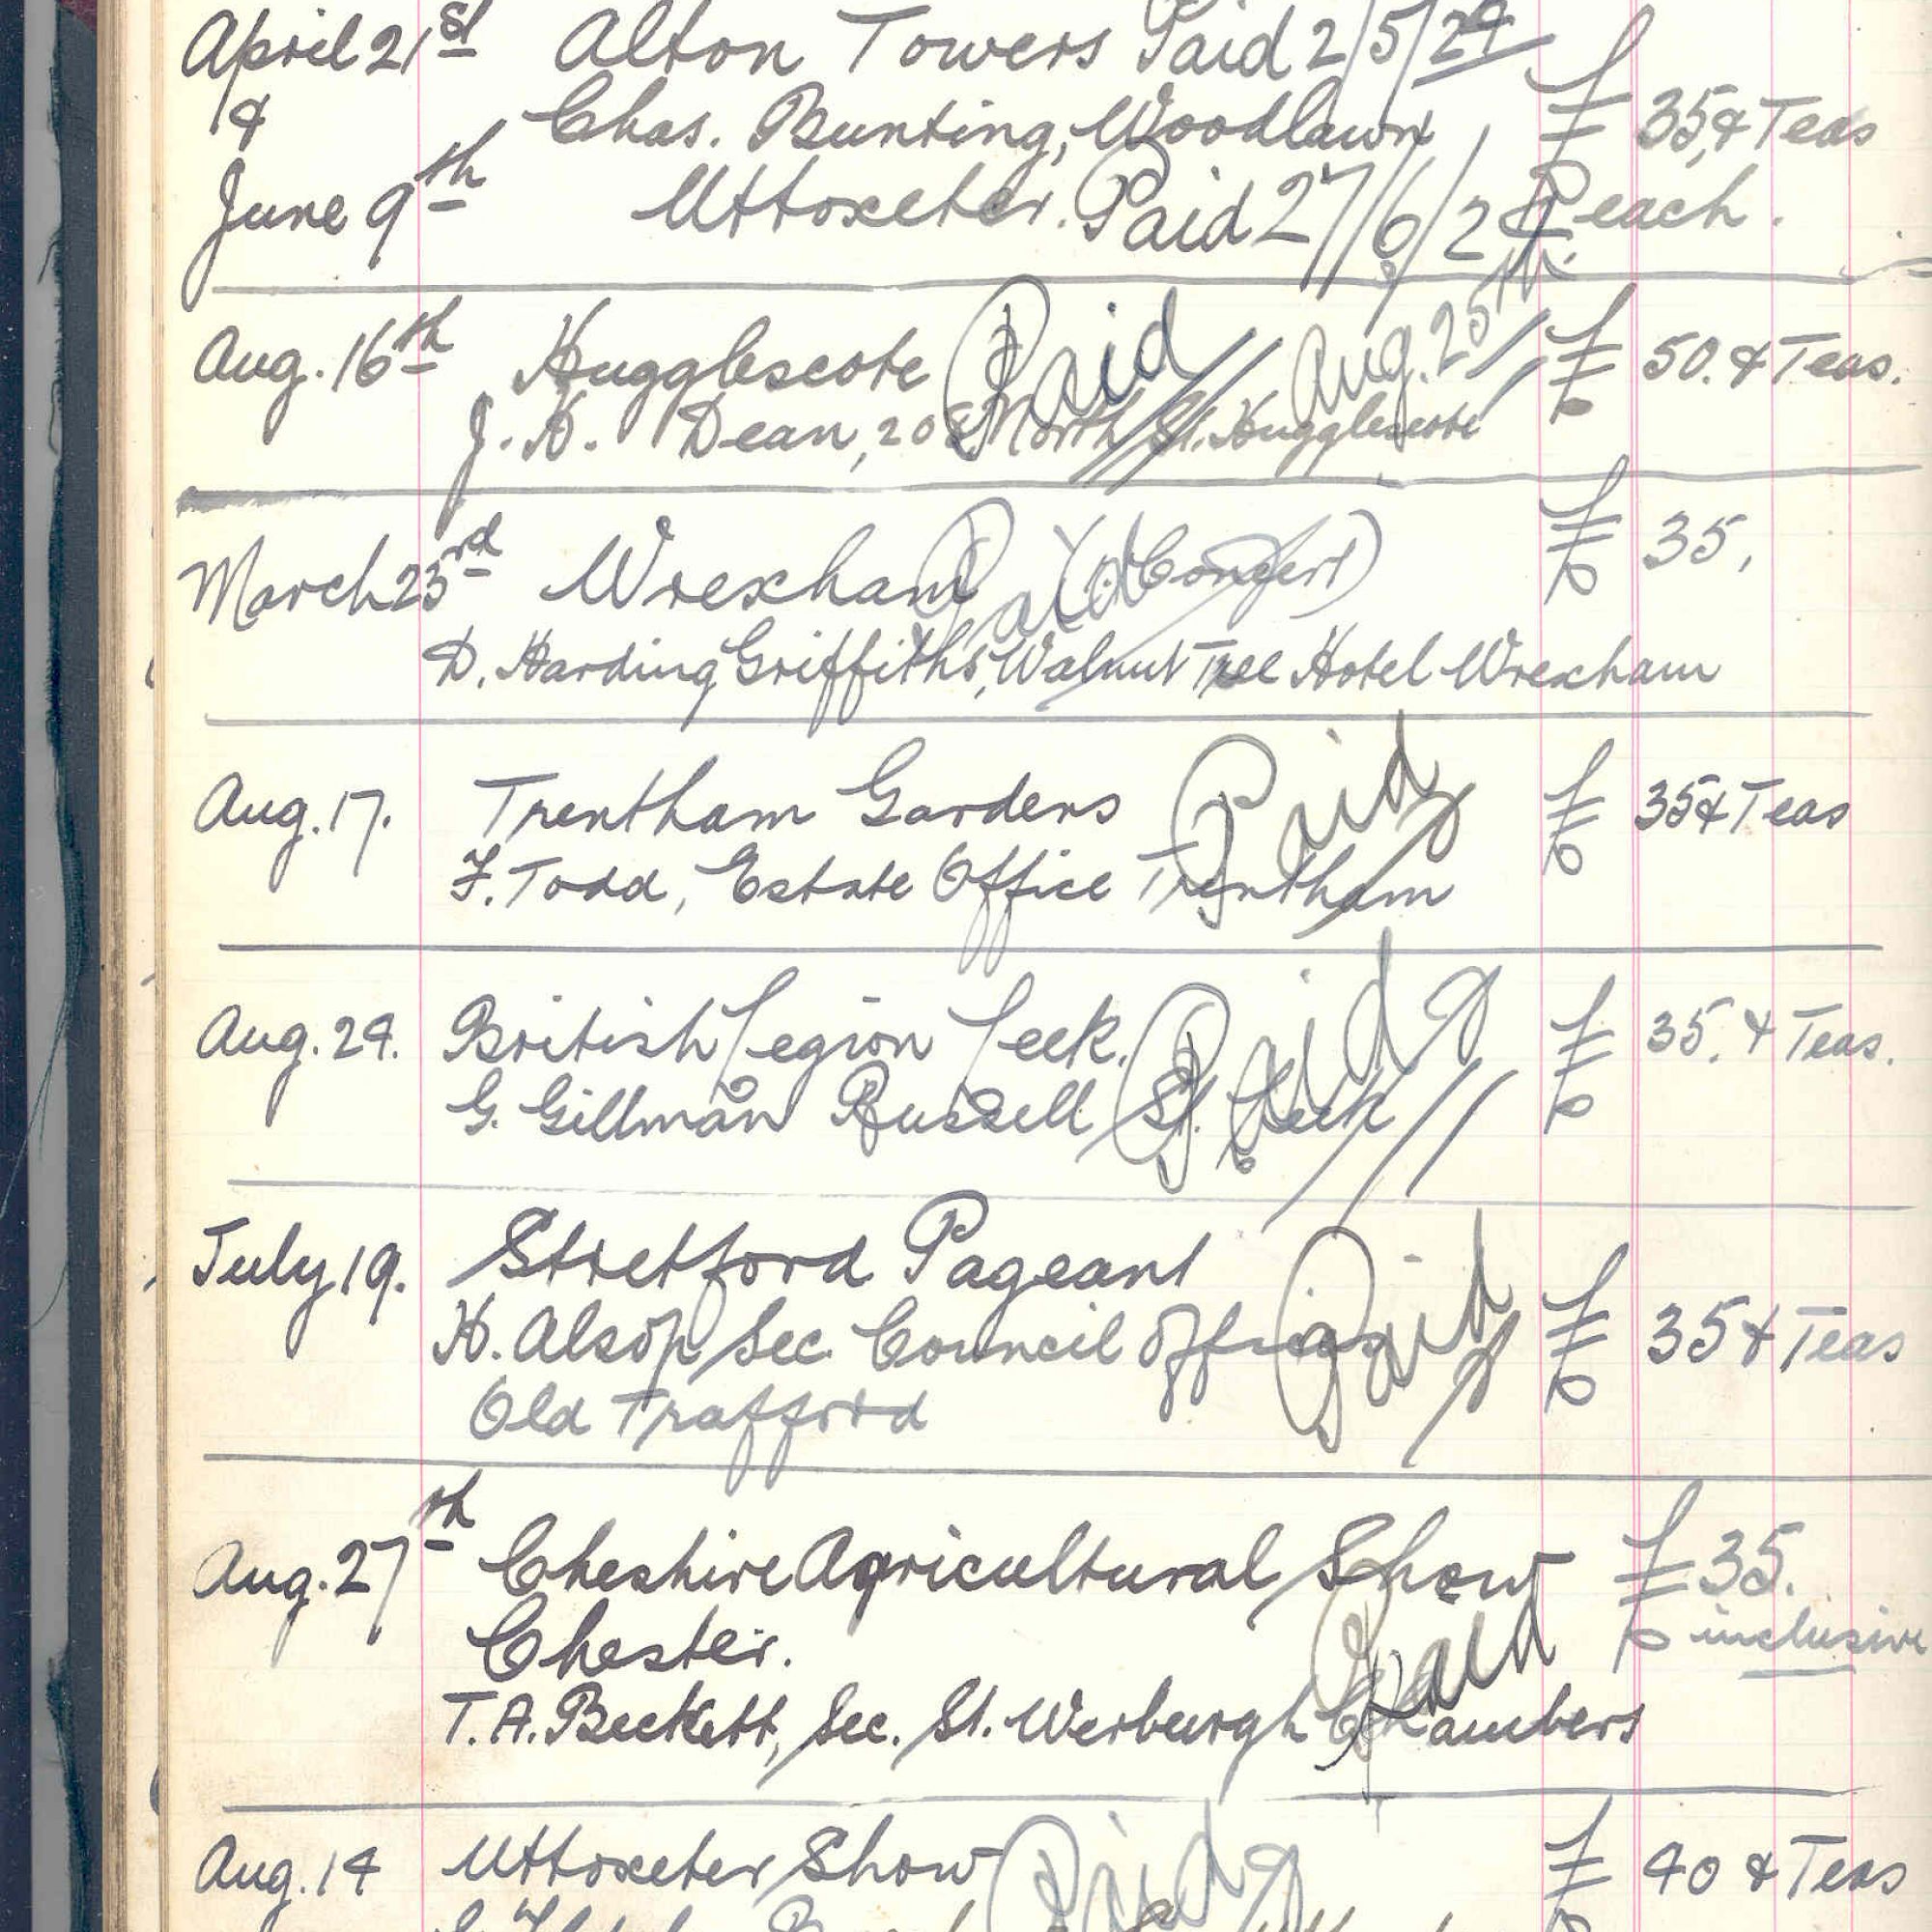 April 21st Alton Towers Paid 2/5/24
& Chas. Bunting, Woodlawn, £35, & Teas
June 9th Uttoxeter. Paid 27/6/24 each.
Aug. 16th Hugglescote Paid Aug. 25th £50. & Teas.
J. H. Dean, 208 North St. Hugglescote
March 23rd Wrexham Paid (Concert) £35,
D. Harding Griffiths, Walnut Tree Hotel Wrexham
Aug. 17. Trentham Gardens Paid £35 & Teas
F. Todd, Estate Office Trentham
Aug. 24. British Legion Leek. Paid £35. & Teas.
G. Gillman Russell St. Leek
July 19. Stretford Pageant Paid £35 & Teas
H. Alsop Sec. Council Offices
Old Trafford
Aug. 27th Cheshire Agricultural Show £35.
Chester. Paid inclusive
T. A. Beckett, Sec. St. Werburgh Chambers
Aug. 14 Uttoxeter Show Paid £40 & Teas